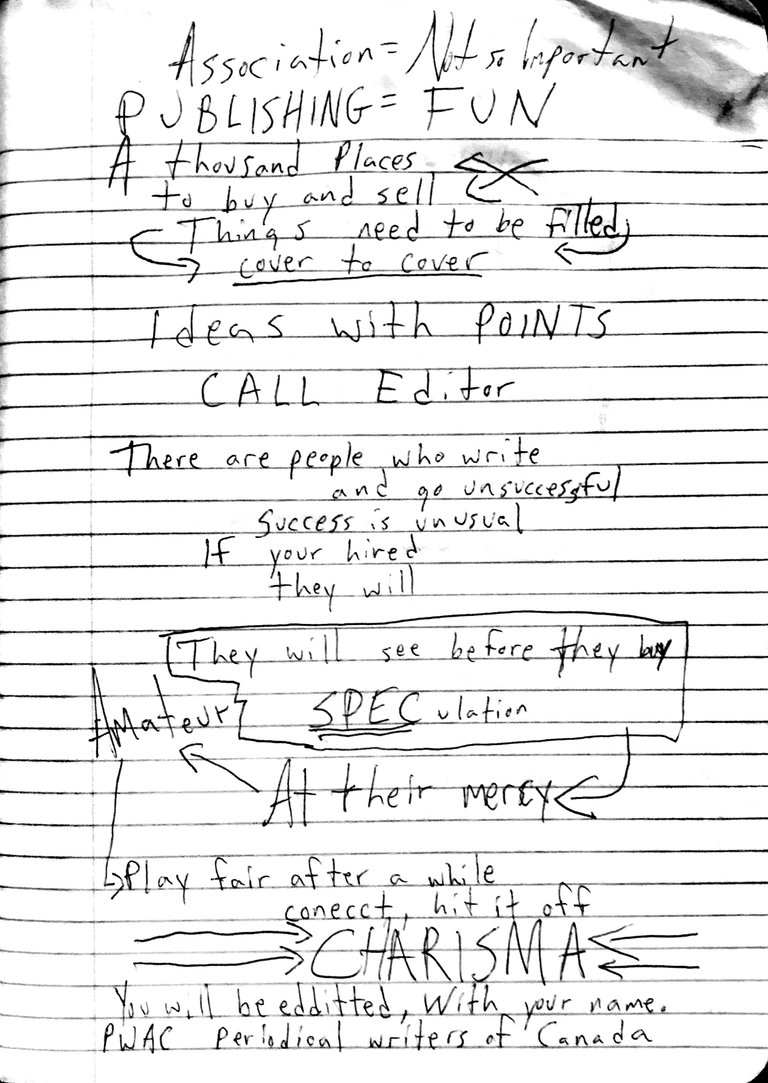 Association = Not so Important
PUBLISHING = FUN
A thousand Places
to buy and sell
Things need to be filled,
cover to cover
Ideas with POINTS
CALL Editor
There are people who write
and go unsuccessful
Success is unusual
If your hired
they will
They will see before they buy
SPECulation
Amateur
At their mercy
Play fair after a while
conecct, hit it off
CHARISMA
You will be edditted, With your name.
PWAC Periodical writers of Canada